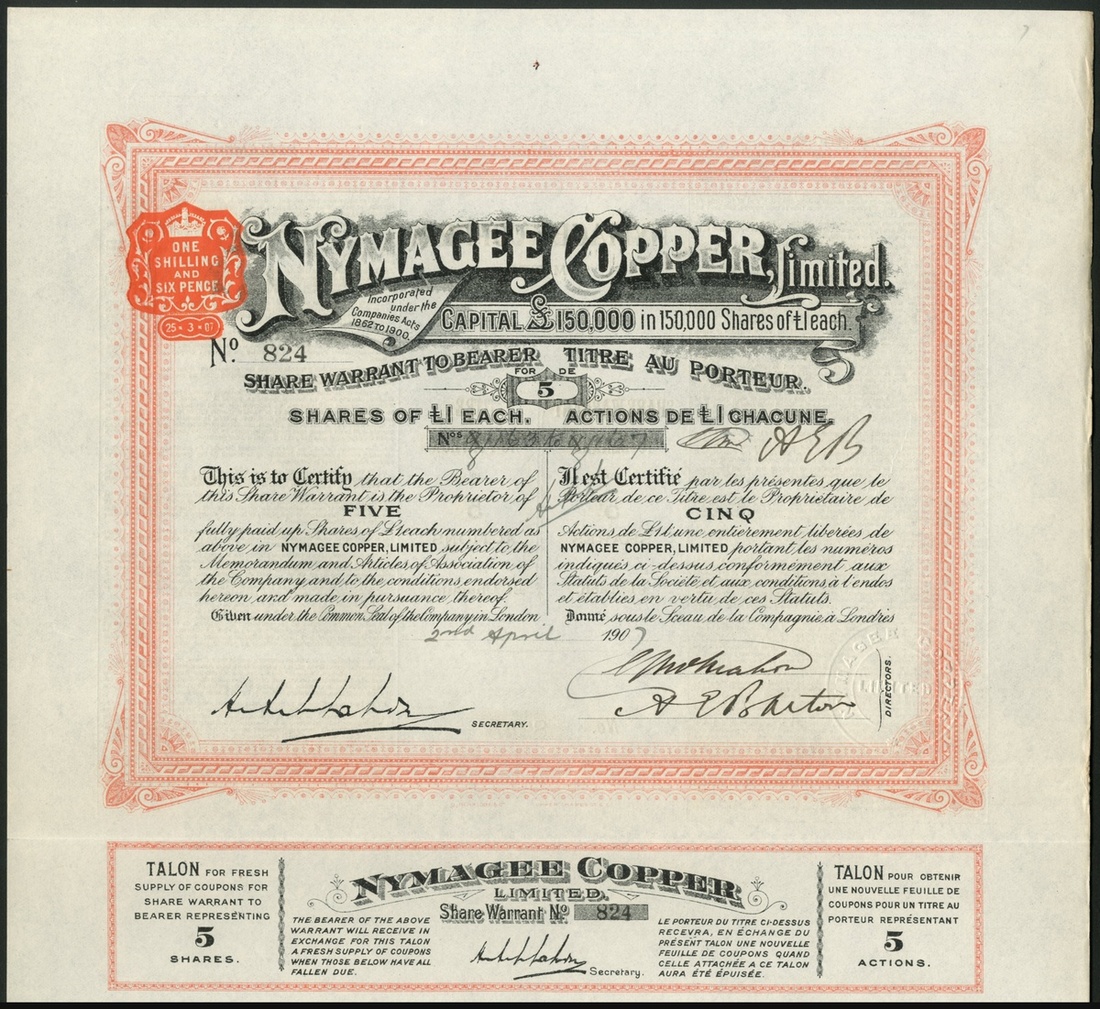 ONE
SHILLING
AND
SIX PENCE
25 · 3 · 07
NYMAGEE COPPER, Limited.
Incorporated
under the
Companies Acts
1862 TO 1900.
CAPITAL £150,000 in 150,000 Shares of £1 each.
No. 824
SHARE WARRANT TO BEARER TITRE AU PORTEUR.
FOR DE
5
SHARES OF £1 EACH. ACTIONS DE £1 CHACUNE.
Nos
A E B
This is to Certify that the Bearer of
this Share Warrant is the Proprietor of
FIVE
fully paid up Shares of £1 each numbered as
above, in NYMAGEE COPPER, LIMITED subject to the
Memorandum and Articles of Association of
the Company and to the conditions endorsed
hereon and made in pursuance thereof.
Given under the Common Seal of the Company in London
Il est Certifié par les présentes que le
Porteur de ce Titre est le Propriétaire de
CINQ
Actions de £1 l'une entièrement liberées de
NYMAGEE COPPER, LIMITED portant les numéros
indiqués ci-dessus conformément aux
Statuts de la Société, et aux conditions à l'endos
et établies en vertu de ces Statuts.
Donné sous le Sceau de la Compagnie à Londres
2nd April 1907
A E Barton
DIRECTORS.
SECRETARY.
LIMITED
TALON FOR FRESH
SUPPLY OF COUPONS FOR
SHARE WARRANT TO
BEARER REPRESENTING
5
SHARES.
NYMAGEE COPPER
LIMITED.
Share Warrant No. 824
THE BEARER OF THE ABOVE
WARRANT WILL RECEIVE IN
EXCHANGE FOR THIS TALON
A FRESH SUPPLY OF COUPONS
WHEN THOSE BELOW HAVE ALL
FALLEN DUE.
Secretary.
LE PORTEUR DU TITRE CI-DESSUS
RECEVRA, EN ÉCHANGE DU
PRÉSENT TALON UNE NOUVELLE
FEUILLE DE COUPONS QUAND
CELLE ATTACHÉE A CE TALON
AURA ÉTÉ ÉPUISÉE.
TALON POUR OBTENIR
UNE NOUVELLE FEUILLE DE
COUPONS POUR UN TITRE AU
PORTEUR REPRÉSENTANT
5
ACTIONS.